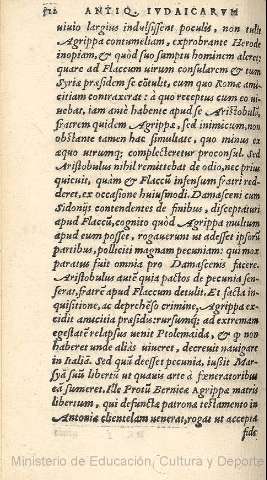 522 ANTIQ. IVDAICARVM
uiuio largius indulsissent poculis, non tulit
Agrippa contumeliam, exprobrante Herode
inopiam, & quòd suo sumptu hominem aleret:
quare ad Flaccum uirum consularem & tum
Syriæ præsidem se cōtulit, cum quo Romæ amicitiam
contraxerat: à quo receptus cum eo uiuebat,
iam antè habente apud se Aristobulū,
fratrem quidem Agrippæ, sed inimicum, non
obstante tamen hac simultate, quo minus ex
æquo utrumq; complecteretur proconsul. Sed
Aristobulus nihil remittebat de odio, nec prius
quieuit, quàm & Flaccū infensum fratri redderet,
ex occasione huiusmodi. Damasceni cum
Sidonijs contendentes de finibus, disceptaturi
apud Flaccū, cognito quòd Agrippa multum
apud eum posset, rogauerunt ut adesset ipsorū
partibus, polliciti magnam pecuniam: qui mox
paratus fuit omnia pro Damascenis facere.
Aristobulus autē quia pactos de pecunia senserat,
fratrē apud Flaccum detulit. Et facta inquisitione,
ac deprehēso crimine, Agrippa excidit
amicitia præsidis: rursumq; ad extremam
egestatē relapsus uenit Ptolemaida, & q; non
haberet unde aliàs uiueret, decreuit nauigare
in Italiā. Sed quū deesset pecunia, iussit Marsyā
suū libertū ut quauis arte à fœneratoribus
eā sumeret. Ille Protū Bernicæ Agrippæ matris
libertum, qui defunctæ patronæ testamento in
Antoniæ clientelam uenerat, rogat ut accepta
Ministerio de Educación, Cultura y Deporte